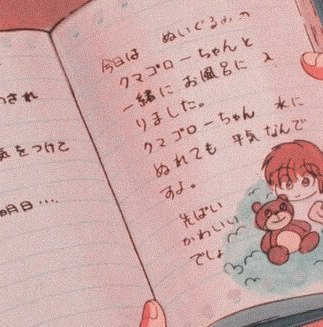 今日は ぬいぐるみの
クマゴローちゃんと
一緒に お風呂に 入
りました。
クマゴローちゃん 水に
ぬれても 平気なんで
すよ。
先ぱい
かわいい
でしょ
され
気をつけて
明日…